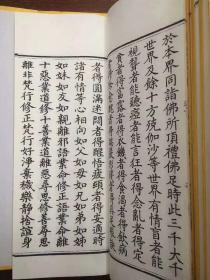 於本界同諸佛所頂禮佛足時此三千大千
世界及餘十方殑伽沙等世界有情盲者能
視聾者能聽瘂者能言狂者得念亂者得定
貧者得富露者得衣飢者得食渴者得飲病
者得除愈醜者得端嚴形殘者得具足根缺
者得圓滿迷悶者得醒悟疲頓者得安適時
諸有情等心相向如父如母如兄如弟如姊
如妹如友如親離邪語業命修正語業命離
十惡業道修十善業道離惡尋思修善尋思
離非梵行修正梵行好淨棄穢樂靜捨諠身